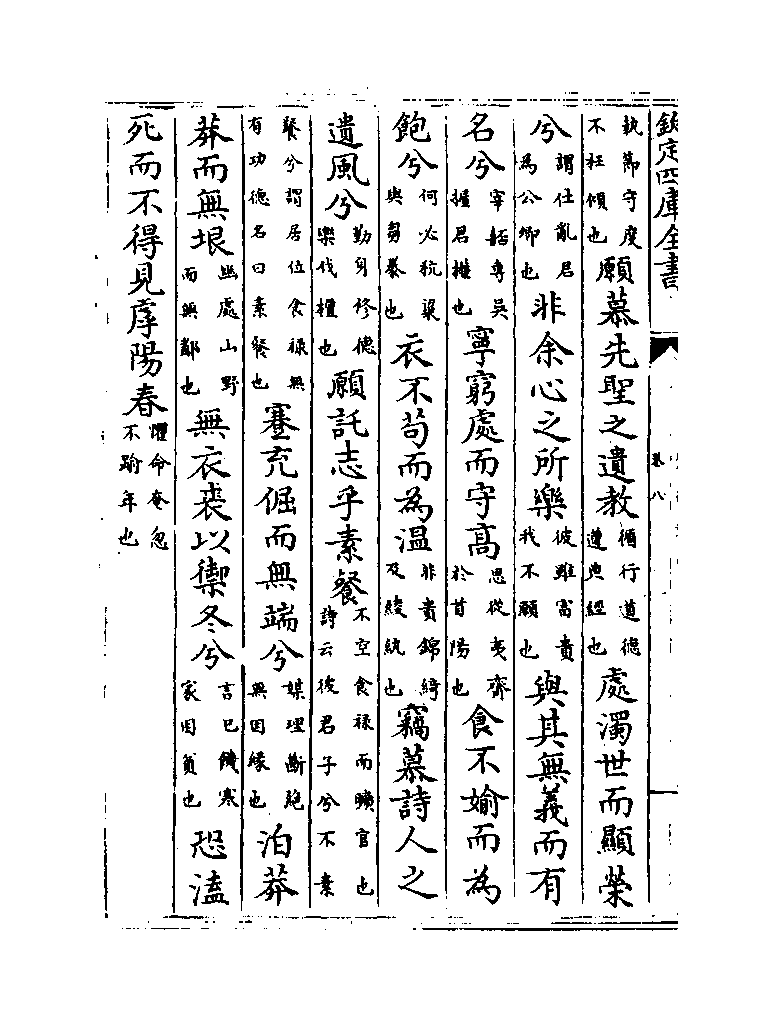 欽定四庫全書
卷八
執節守度不枉傾也願慕先聖之遺教循行道德遵典經也處濁世而顯榮
兮謂仕亂君為公卿也非余心之所樂彼雖富貴我不願也與其無義而有
名兮宰嚭專吳握君權也寧窮處而守高思從夷齊於首陽也食不媮而為
飽兮何必秔粱與芻豢也衣不苟而為温非貴錦綺及綾紈也竊慕詩人之
遺風兮勤身修德樂伐檀也願託志乎素餐不空食祿而曠官也詩云彼君子兮不素
餐兮謂居位食祿無有功德名曰素餐也蹇充倔而無端兮媒理斷絶無因緣也泊莽
莽而無垠幽處山野而無鄰也無衣裘以禦冬兮言己饑寒家困貧也恐溘
死而不得見虖陽春懼命奄忽不踰年也